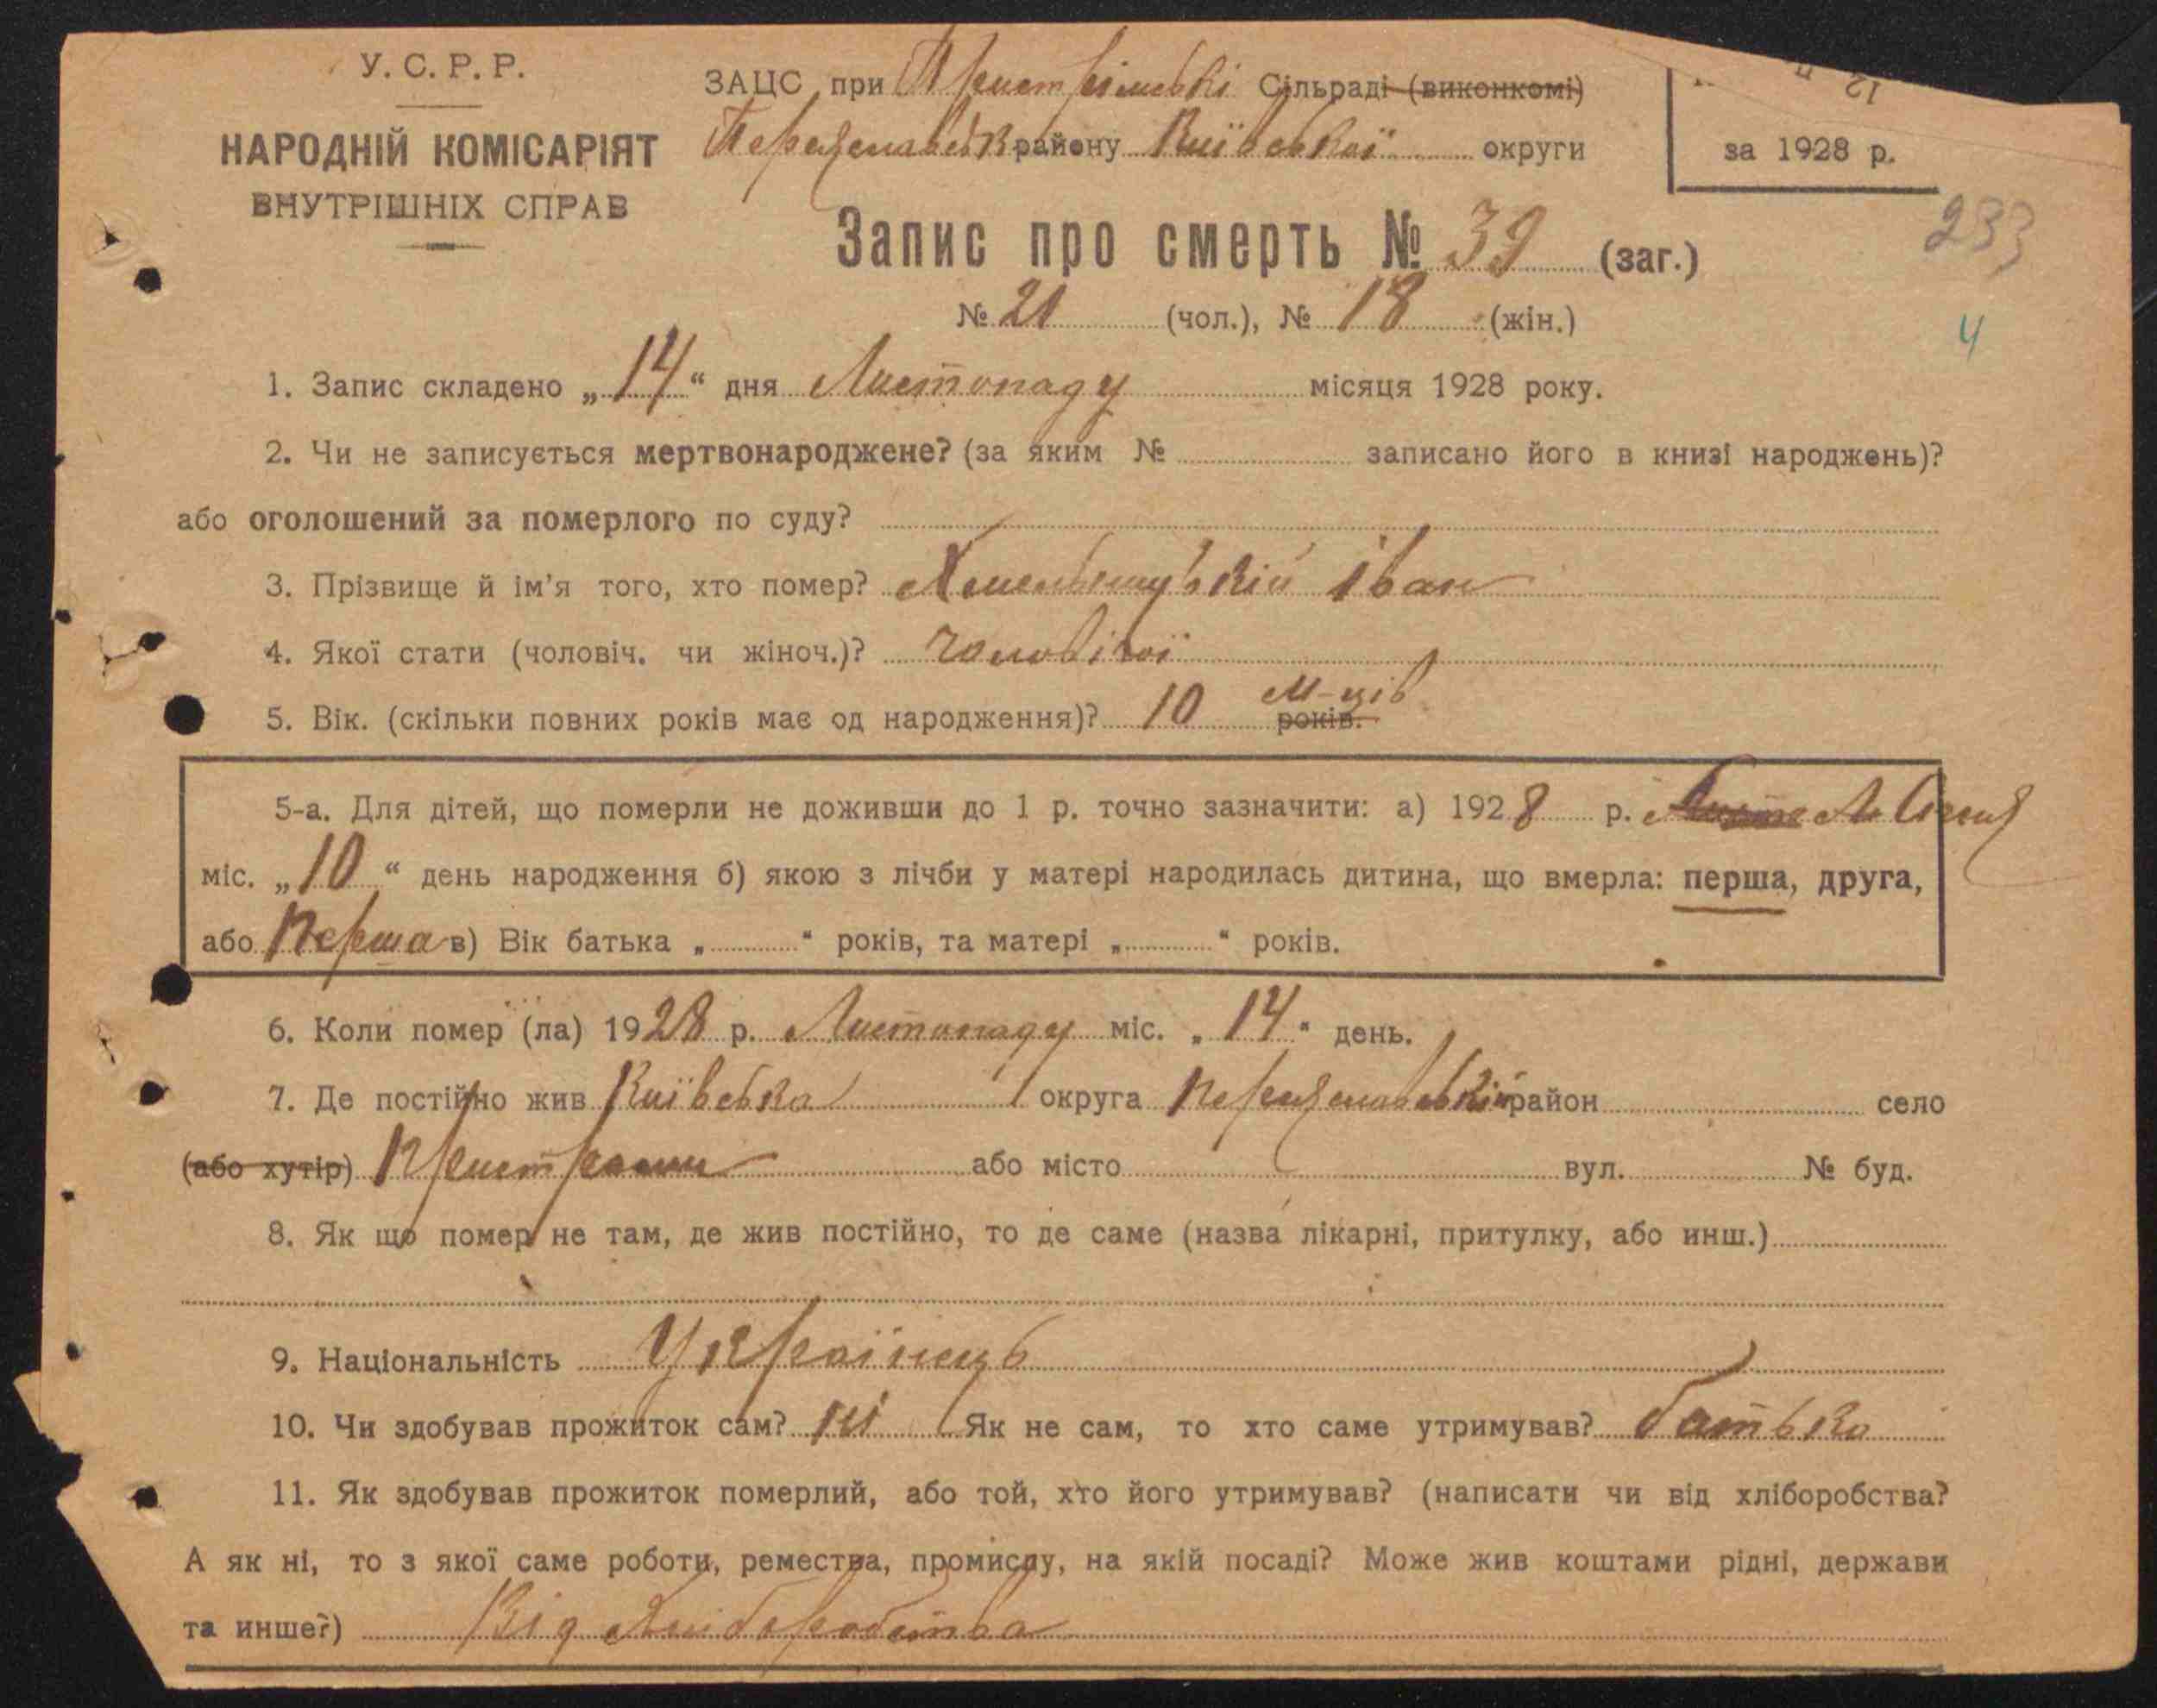 У. С. Р. Р.
НАРОДНІЙ КОМІСАРІЯТ
ВНУТРІШНІХ СПРАВ
ЗАЦС при Пристромські Сільраді (виконкомі)
Переяславськ району Київської округи
за 1928 р.
233
Запис про смерть № 39 (заг.)
№ 21 (чол.), № 18 (жін.)
4
1. Запис складено „14“ дня Листопаду місяця 1928 року.
2. Чи не записується мертвонароджене? (за яким № записано його в книзі народжень)?
або оголошений за померлого по суду?
3. Прізвище й ім'я того, хто помер? Іван
4. Якої стати (чоловіч. чи жіноч.)? чоловічої
5. Вік. (скільки повних років має од народження)? 10 М-ців років.
5-а. Для дітей, що померли не доживши до 1 р. точно зазначити: а) 1928 р.
міс. „10“ день народження б) якою з лічби у матері народилась дитина, що вмерла: перша, друга,
або Перша в) Вік батька „ “ років, та матері „ “ років.
6. Коли помер (ла) 1928 р. Листопаду міс. „14“ день.
7. Де постійно жив Київська округа Переяславський район село
(або хутір) Пристроми або місто вул. № буд.
8. Як що помер не там, де жив постійно, то де саме (назва лікарні, притулку, або инш.)
9. Національність Українець
10. Чи здобував прожиток сам? ні Як не сам, то хто саме утримував? батько
11. Як здобував прожиток померлий, або той, хто його утримував? (написати чи від хліборобства?
А як ні, то з якої саме роботи, ремества, промислу, на якій посаді? Може жив коштами рідні, держави
та инше?) Від Хліборобства